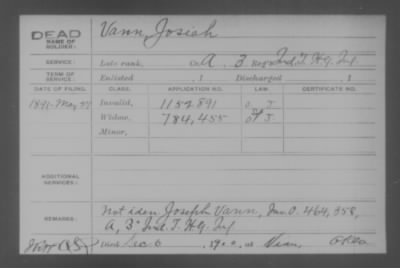 DEAD
NAME OF SOLDIER:
Vann, Josiah
SERVICE:
Late rank, Co. A. 3 Reg't Ind. T. H.G. Inf
TERM OF SERVICE:
Enlisted , 1 Discharged , 1
DATE OF FILING. CLASS. APPLICATION NO. LAW. CERTIFICATE NO.
1894 May Invalid, 1152891
Widow, 784,455
Minor,
ADDITIONAL SERVICES:
REMARKS:
Not iden Joseph Vann, Inv. O. 464,358,
A, 3" Ind. T. H.G. Inf
Died Dec 6 , 1900, at Okla